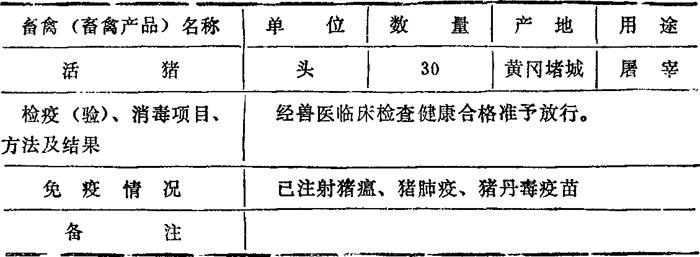 畜禽（畜禽产品）名称 单位 数量 产地 用途
活猪 头 30 黄冈堵城 屠宰
检疫（验）、消毒项目、 经兽医临床检查健康合格准予放行。
方法及结果
免疫情况 已注射猪瘟、猪肺疫、猪丹毒疫苗
备注